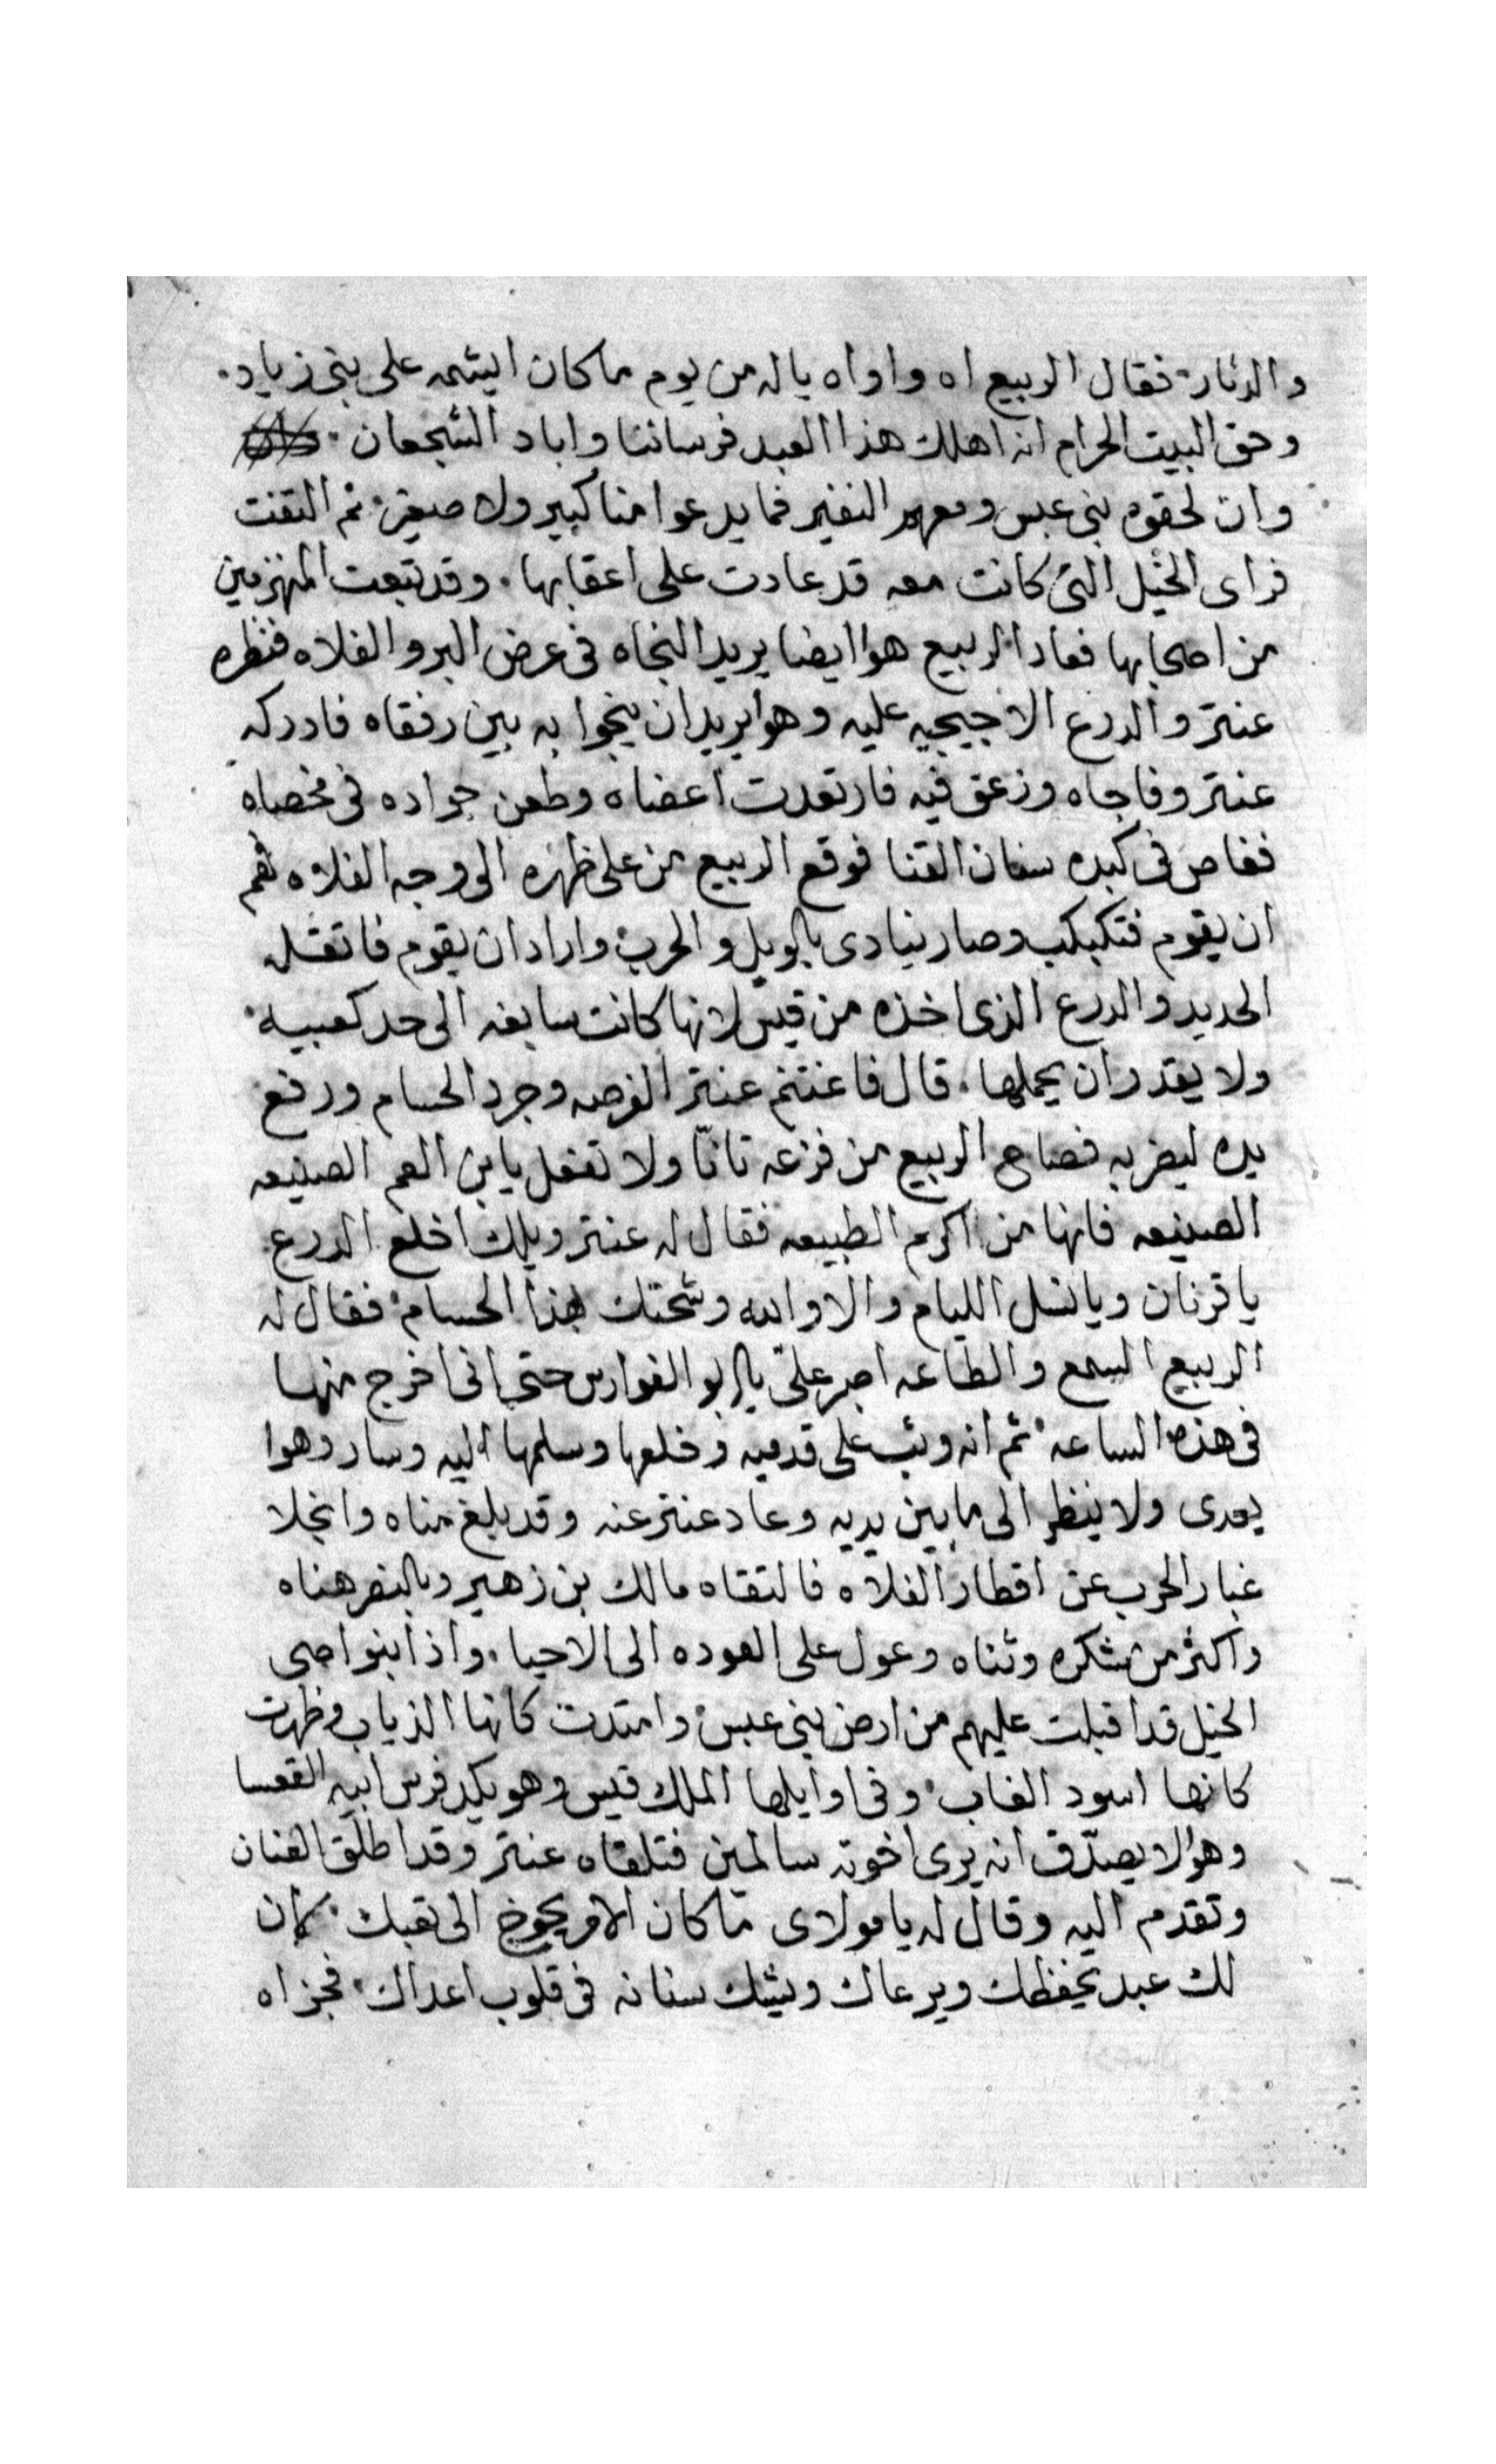 والدثار فقال الربيع اه واواه ياله من يوم ما كان ايشمه على بنى زياد
وحق البيت الحرام انه اهلك هذا العبد فرساننا واباد الشجعان
وان لحقوه بنى عبس ومعهم النفير فما يدعوا منا كبير ولا صغير ثم التفت
فراى الخيل التى كانت معه قد عادت على اعقابها وقد تبعت المنهزمين
من اصحابها فعاد الربيع هوا ايضا يريد النجاه فى عرض البر والفلاه فنظره
عنتر والدرع الاجيحيه عليه وهوا يريد ان ينجوا به بين رفقاه فادركه
عنتر وفاجاه وزعق فيه فارتعدت اعضاه وطعن جواده فى مخصاه
فغاص فى كبده سنان القنا فوقع الربيع من على ظهره الى وجه الفلاه فهم
ان يقوم فتكبكب وصار ينادى بالويل والحرب واراد ان يقوم فاتقله
الحديد والدرع الذى اخذه من قيس لانها كانت سابغه الى حد كعبيه
ولا يقدر ان يحملها قال فاغتنم عنتر الفرصه وجرد الحسام ورفع
يده ليضربه فصاح الربيع من فزعه تانا ولا تفعل يابن العم الصنيعه
الصنيعه فانها من اكرم الطبيعه فقال له عنتر ويلك اخلع الدرع
يا قرنان ويا نسل الليام والا والله وشحتك بهذا الحسام فقال له
الربيع السمع والطاعه اصبر على يا ابو الفوارس حتى انى اخرج منها
فى هذه الساعه ثم انه وثب على قدميه وخلعها وسلمها اليه وسار وهوا
يعدى ولا ينظر الى ما بين يديه وعاد عنتر عنه وقد بلغ مناه وانجلا
غبار الحرب عن اقطار الفلاه فالتقاه مالك بن زهير وبالنصر هناه
واكثر من شكره وثناه وعول على العوده الى الاحيا واذا بنواصى
الخيل قد اقبلت عليهم من ارض بنى عبس وامتدت كانها الذياب وظهرت
كانها اسود الغاب وفى اوايلها الملك قيس وهو يكد فرس ابيه القعسا
وهوا لا يصدق انه يرى اخوته سالمين فتلقاه عنتر وقد اطلق العنان
وتقدم اليه وقال له يا مولاى ما كان الامر يحوج الى تعبك كان
لك عبد يحفظك ويرعاك ويشك سنانه فى قلوب اعداك فجزاه